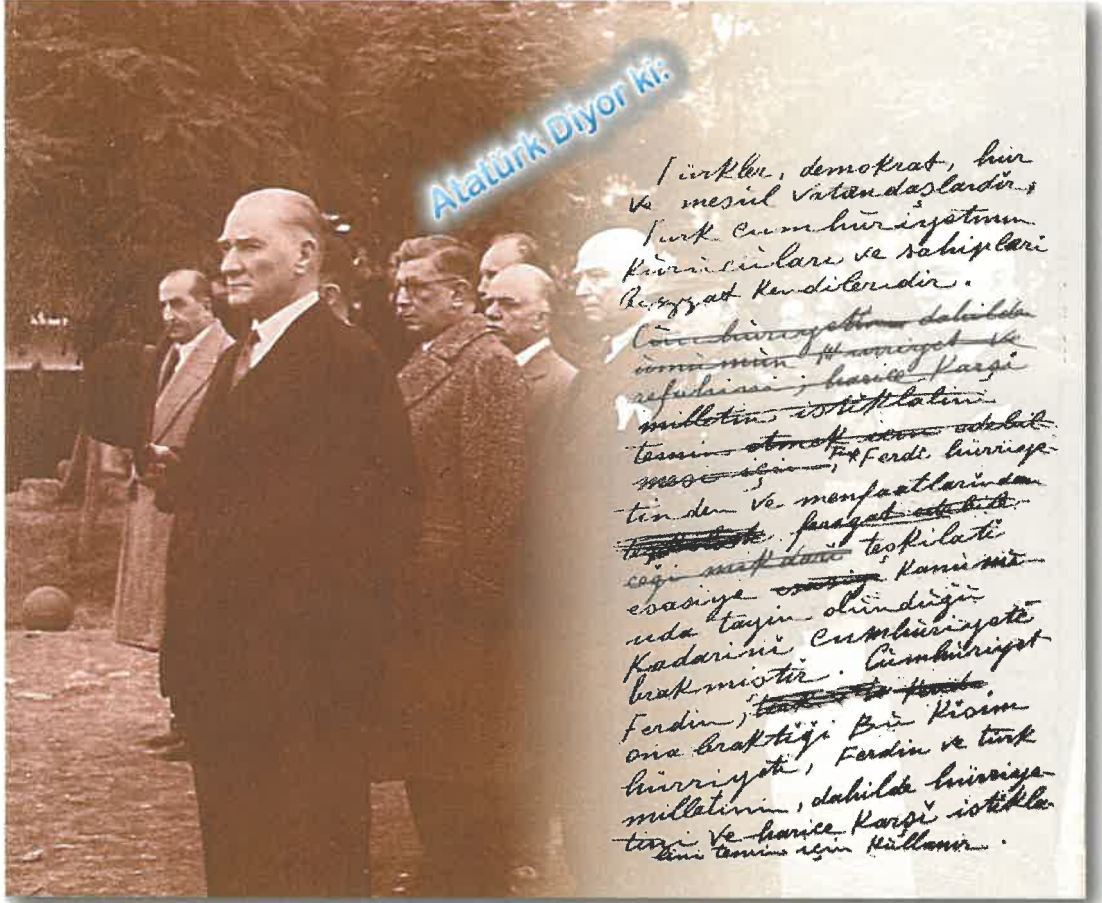 Atatürk Diyor ki:
Türkler, demokrat, hür
ve mesül vatandaşlardır,
Türk cumhüriyetinin
Kürücüları ve sahipleri
Bizzat Kendileridir.
Cümhüriyetin dahilde
ümümün Hürriyet ve
refahini; harice Karşi
milletin istiklalini
temin etmek için edebil
mesi için, Ferdi hürriye-
tinden ve menfaatlarindan
feragat edebile
ceği mikdari teşkilati
esasiye esasiye Kanünü
nda tayin olündüğü
Kadarini cumhüriyete
brakmiştir. Cümhüriyet
Ferdin,
ona braktiği Bü Kisim
hürriyeti, Ferdin ve türk
milletinin, dahilde hürriye-
tini ve harice Karşi istikla-
lini temin için Küllanir.